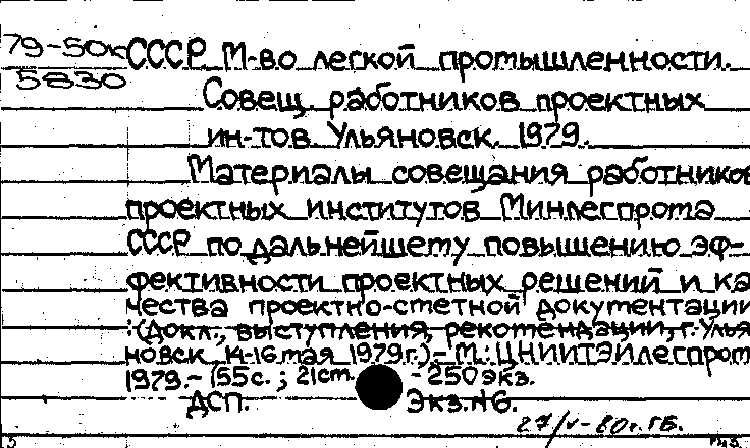 79-50к СССР. М-во легкой промышленности.
5830
Совещ. работников проектных
ин-тов. Ульяновск. 1979.
Материалы совещания работников
проектных институтов Минлегпрома
СССР по дальнейшему повышению эф-
фективности проектных решений и ка
чества проектно-сметной документации
:(Докл., выступления, рекомендации, г. Улья
новск 14-16 мая 1979г.).- М.: ЦНИИТЭИлегпром
1979.- 155с. ; 21см. -250экз.
ДСП. Экз.№6.
27/V-80г. ГБ.